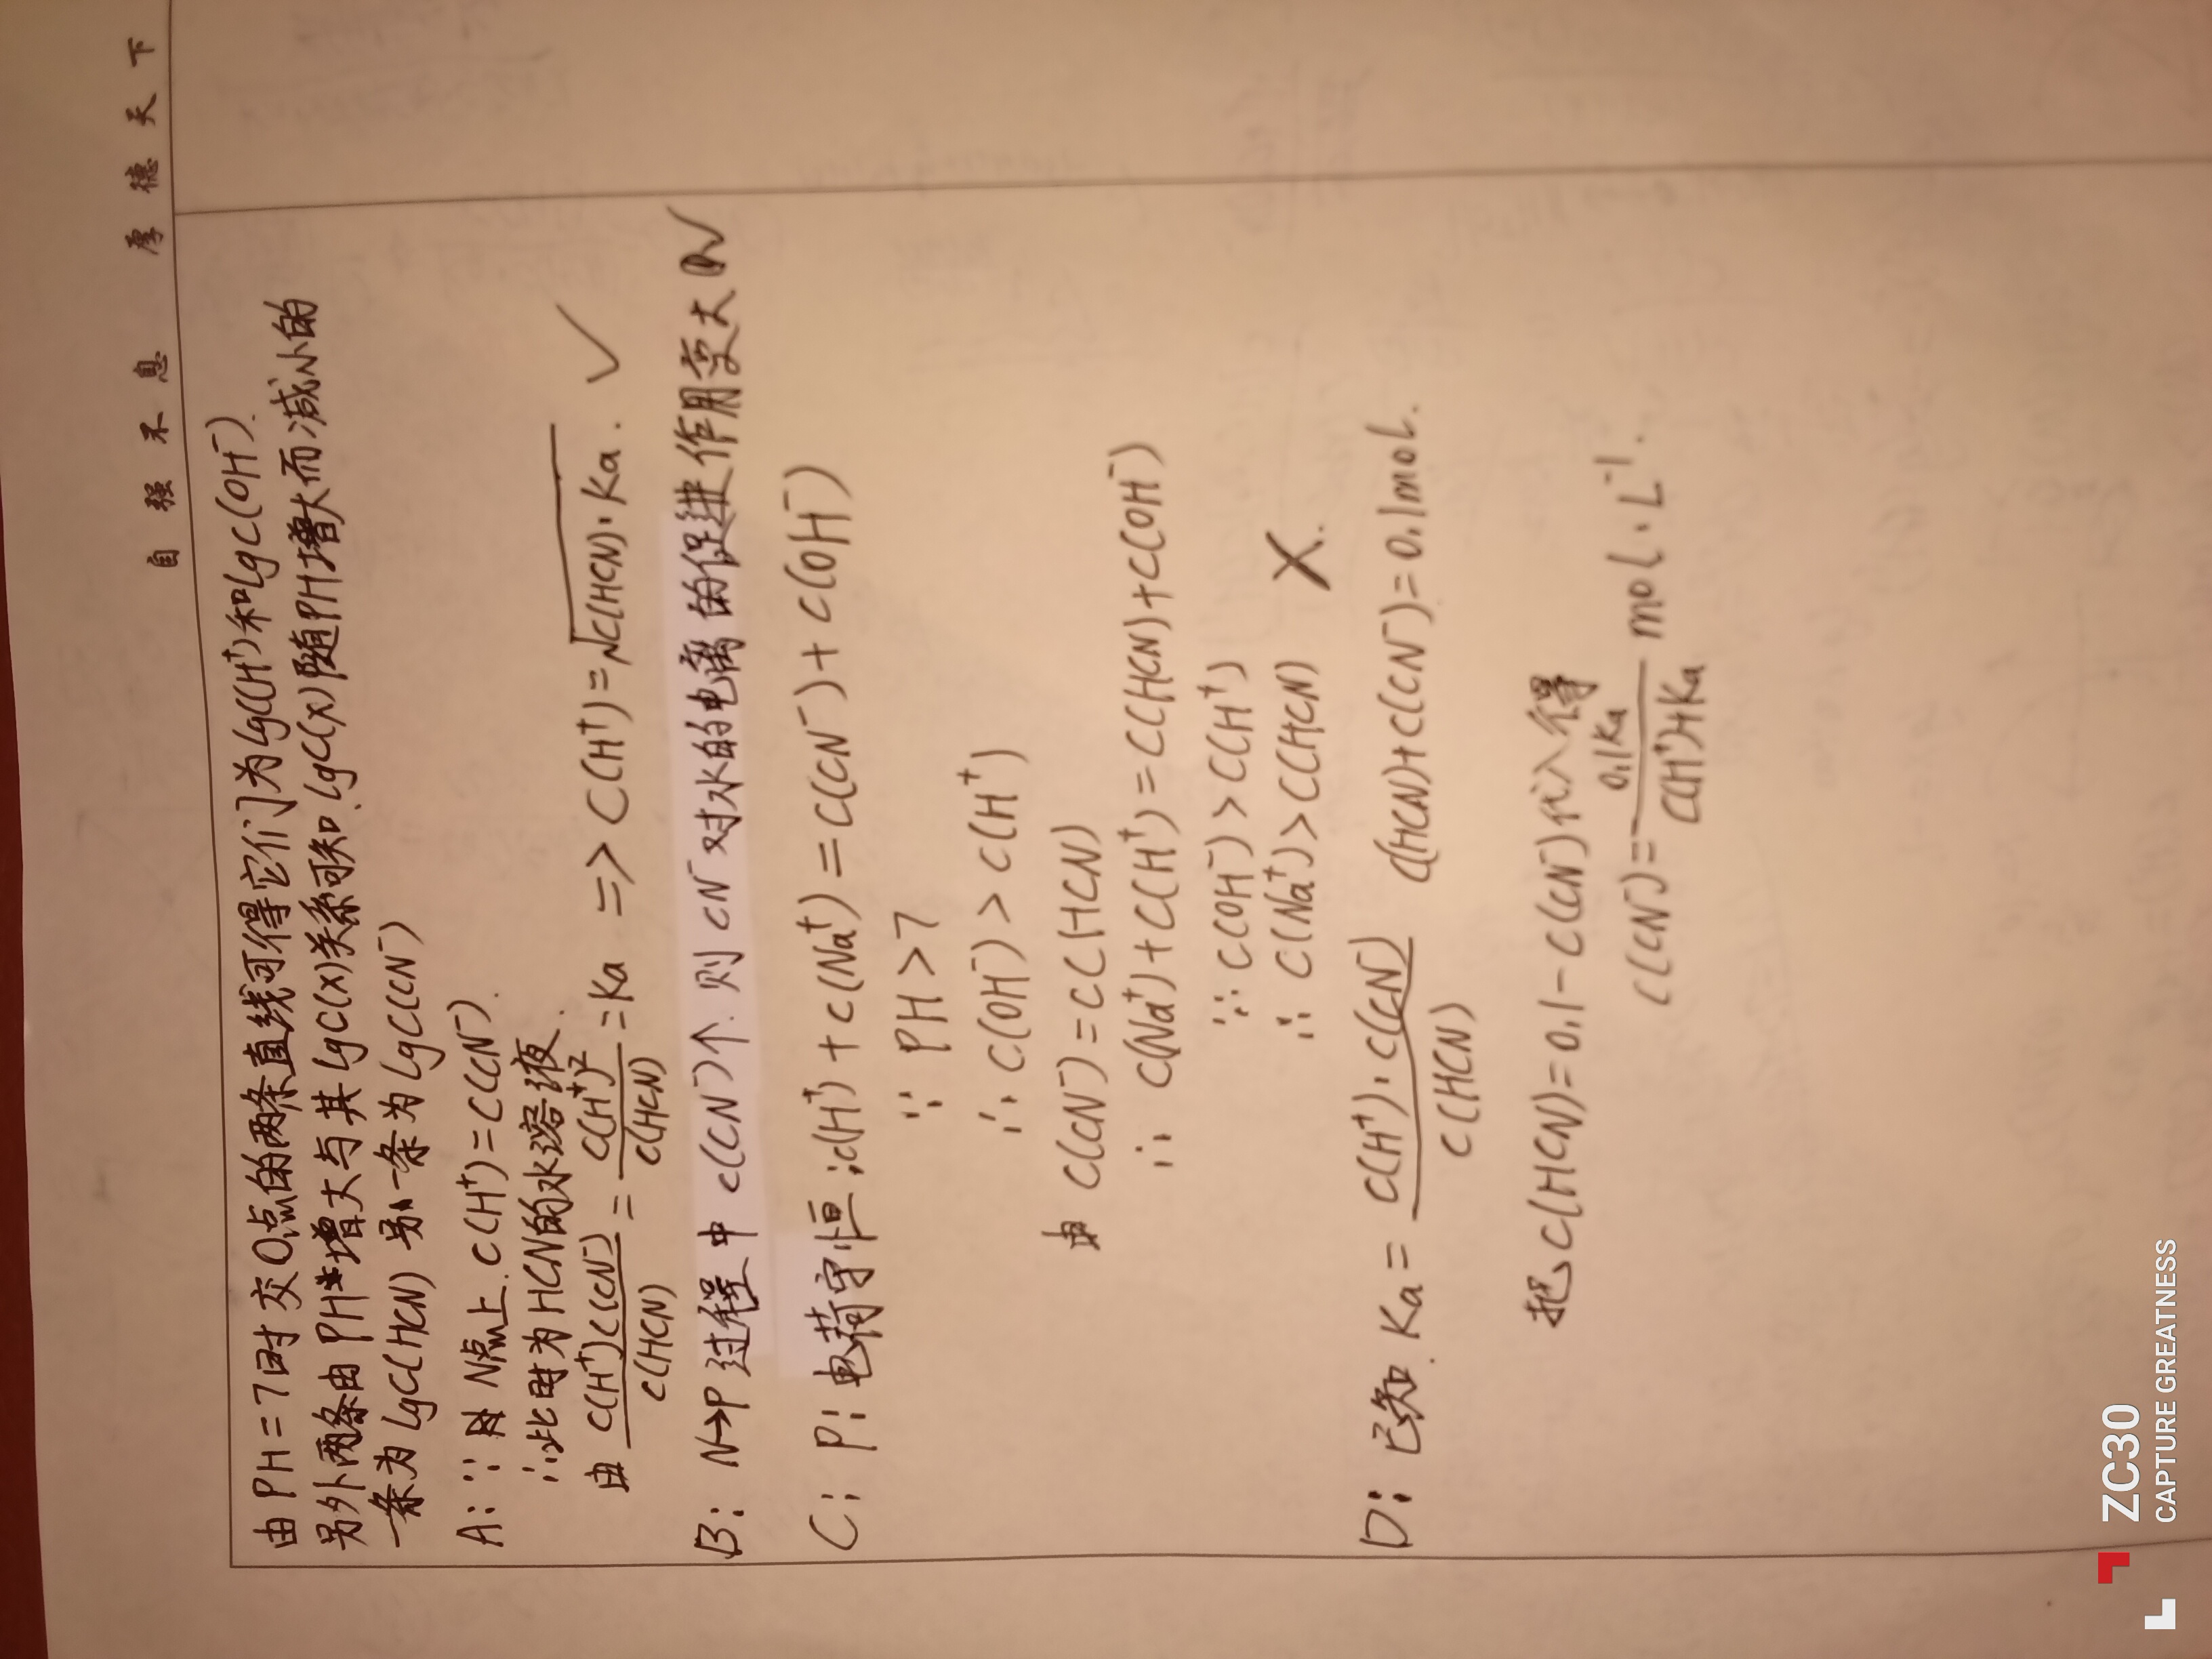 自强不息 厚德天下
由PH=7时交O点的两条直线可得它们为lgC(H⁺)和lgC(OH⁻).
另外两条由PH增大与其lgC(x)关系可知.lgC(x)随PH增大而减小的
一条为lgC(HCN) 另一条为lgC(CN⁻)
A: ∵ N点上.C(H⁺)=C(CN⁻).
∴此时为HCN的水溶液.
由 C(H⁺)C(CN⁻)/C(HCN) = C(H⁺)²/C(HCN) =Ka => C(H⁺)=√C(HCN)·Ka. ✓
B: N→P过程中 c(CN⁻)个 则 CN⁻对水的电离的促进作用变大 ✓
C: P: 电荷守恒:c(H⁺)+c(Na⁺)=C(CN⁻)+C(OH⁻)
∵ PH>7
∴ C(OH⁻)>C(H⁺)
由 C(CN⁻)=C(HCN)
∴ C(Na⁺)+C(H⁺)=C(HCN)+C(OH⁻)
∵ C(OH⁻)>C(H⁺)
∴ C(Na⁺)>C(HCN) X.
D: 已知.Ka= C(H⁺)·C(CN⁻)/C(HCN) C(HCN)+C(CN⁻)=0.1mol.
把C(HCN)=0.1-C(CN⁻)代入得
C(CN⁻)= 0.1Ka/C(H⁺)+Ka mol·L⁻¹.
ZC30
CAPTURE GREATNESS